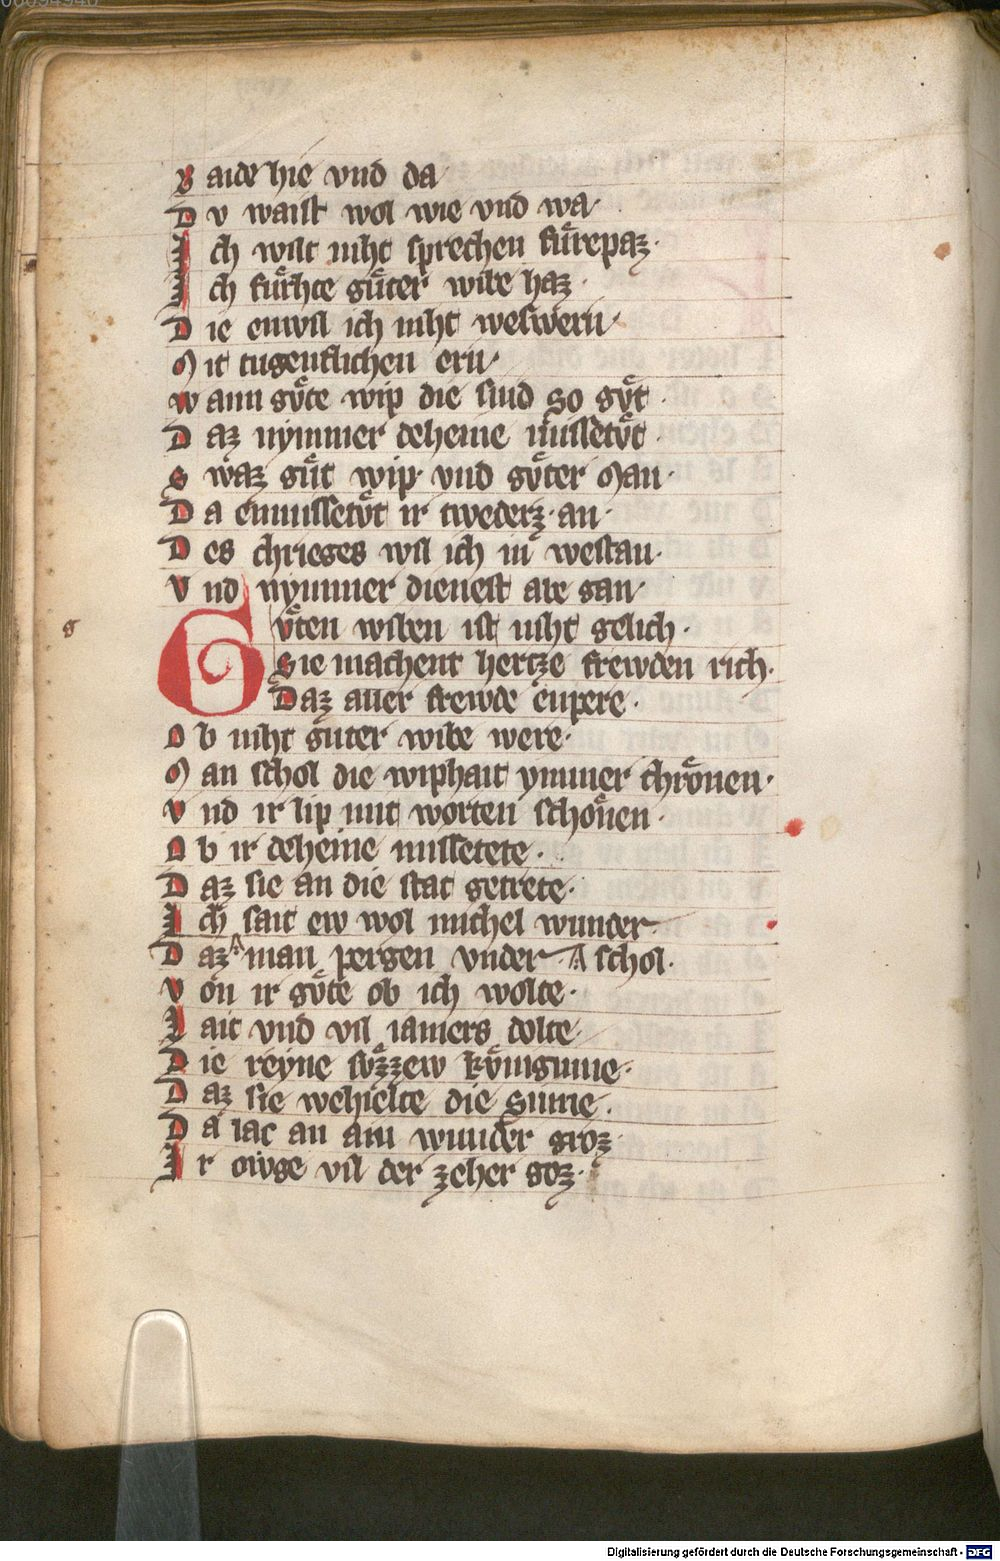 B aide hie vnd da
D v waist wol wie vnd wa·
I ch wil niht sprechen fuͤrepaz·
I ch fuͤrhte guͤter wibe haz·
D ie enwil ich niht weswern·
M it tugentlichen ern·
W ann gvͦte wip die sind so gvͦt·
D az nymmer deheine missetvͦt·
S waz guͦt wip· vnd gvͦter Man·
D a enmissetvͦt ir twederz· an·
D es chrieges wil ich in westan·
V nd nymmer dienest abe gan·
g
Gvͦten wiben ist niht gelich·
Sie machent hertze frewden rich·
Daz aller frewde enpere·
O b niht guter wibe were·
M an schol die wiphait ymmer chroͤnen·
V nd ir lip mit worten schoͤnen·
O b ir deheine missetete·
D az sie an die stat getrete·
I ch sait ew wol michel wunder
D az man pergen vnder schol·
V on ir gvͤte ob ich wolte·
L ait vnd vil iamers dolte·
D ie reyne svͤzzew kvͤniginne·
D az sie wehielte die sinne·
D a lac an ain wunder groz·
I r owge vil der zeher goz·
Digitalisierung gefördert durch die Deutsche Forschungsgemeinschaft - DFG